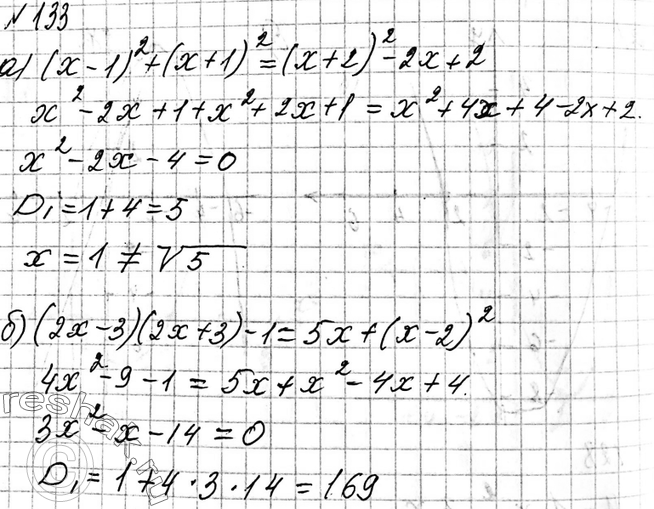 № 133
а) (x-1)²+(x+1)²=(x+2)²-2x+2
x²-2x+1+x²+2x+1=x²+4x+4-2x+2.
x²-2x-4=0
D₁=1+4=5
x=1≠√5
б) (2x-3)(2x+3)-1=5x+(x-2)²
4x²-9-1=5x+x²-4x+4.
3x²-x-14=0
D₁=1+4·3·14=169